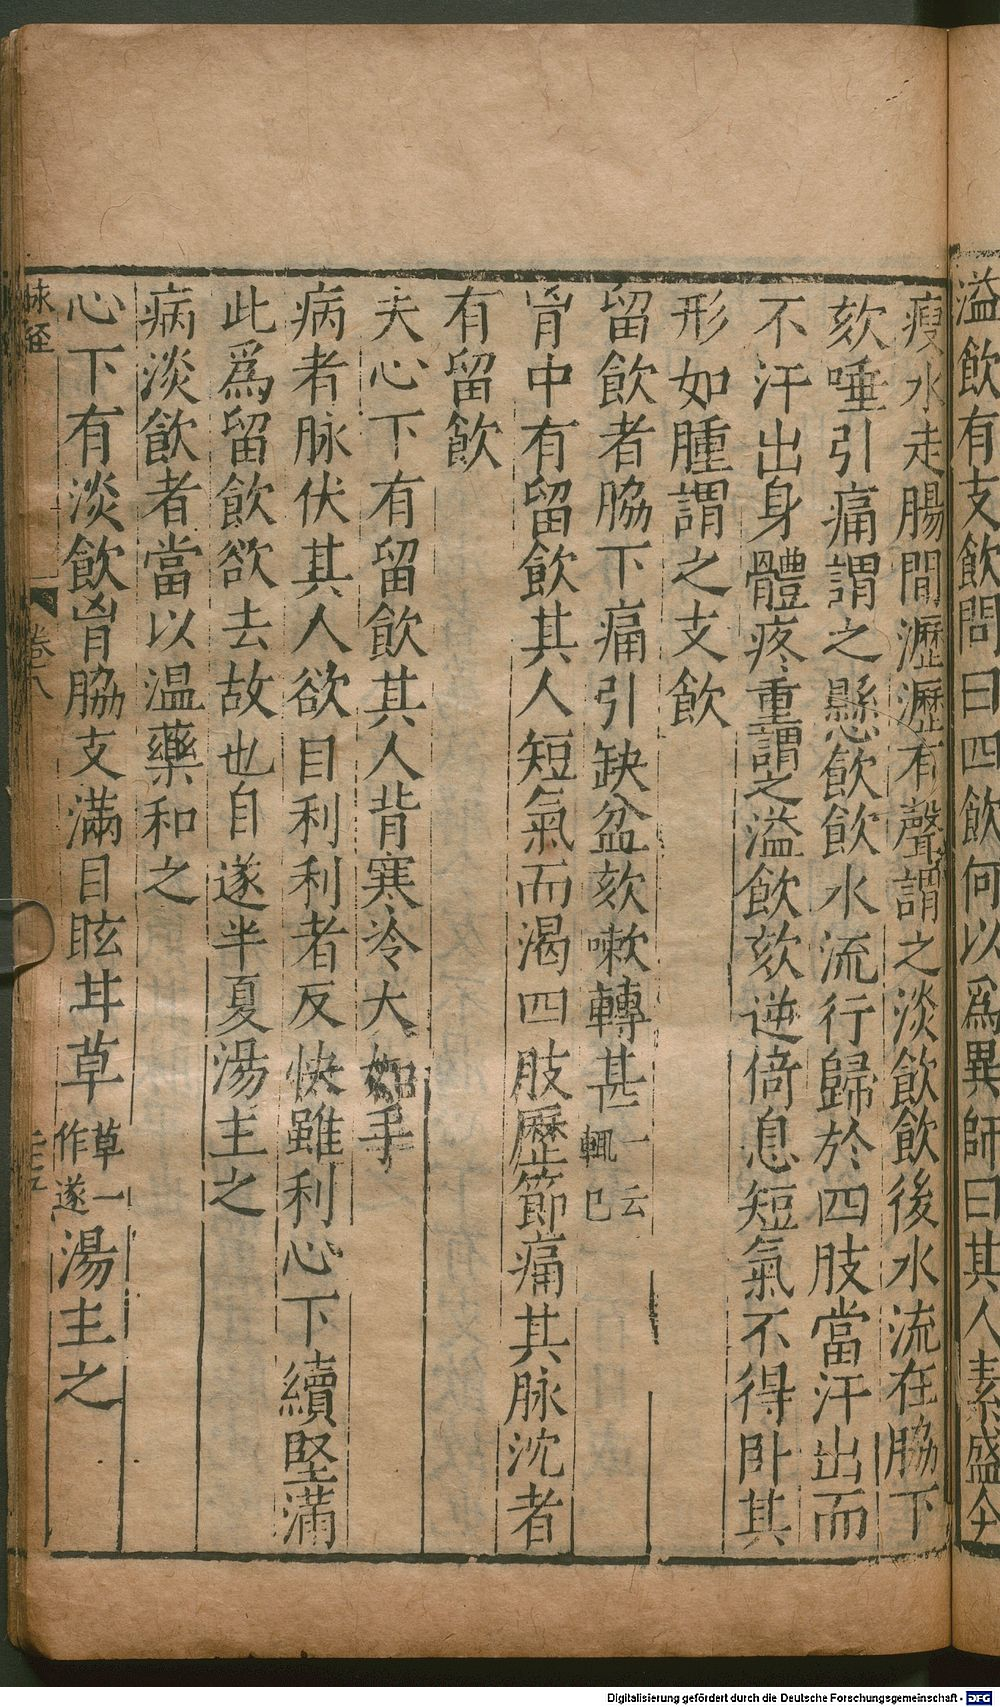 溢飲有支飲問曰四飲何以爲異師曰其人素盛今
瘦水走腸間瀝瀝有聲謂之淡飲飲後水流在脇下
欬唾引痛謂之懸飲飲水流行歸於四肢當汗出而
不汗出身體疼重謂之溢飲欬逆倚息短氣不得卧其
形如腫謂之支飲
留飲者脇下痛引缺盆欬嗽轉甚一云輒已
胷中有留飲其人短氣而渴四肢歷節痛其脉沈者
有留飲
夫心下有留飲其人背寒冷大如手
病者脉伏其人欲自利利者反快雖利心下續堅滿
此爲留飲欲去故也甘遂半夏湯主之
病淡飲者當以温藥和之
心下有淡飲胷脇支滿目眩甘草草一作遂湯主之
脉經 卷八